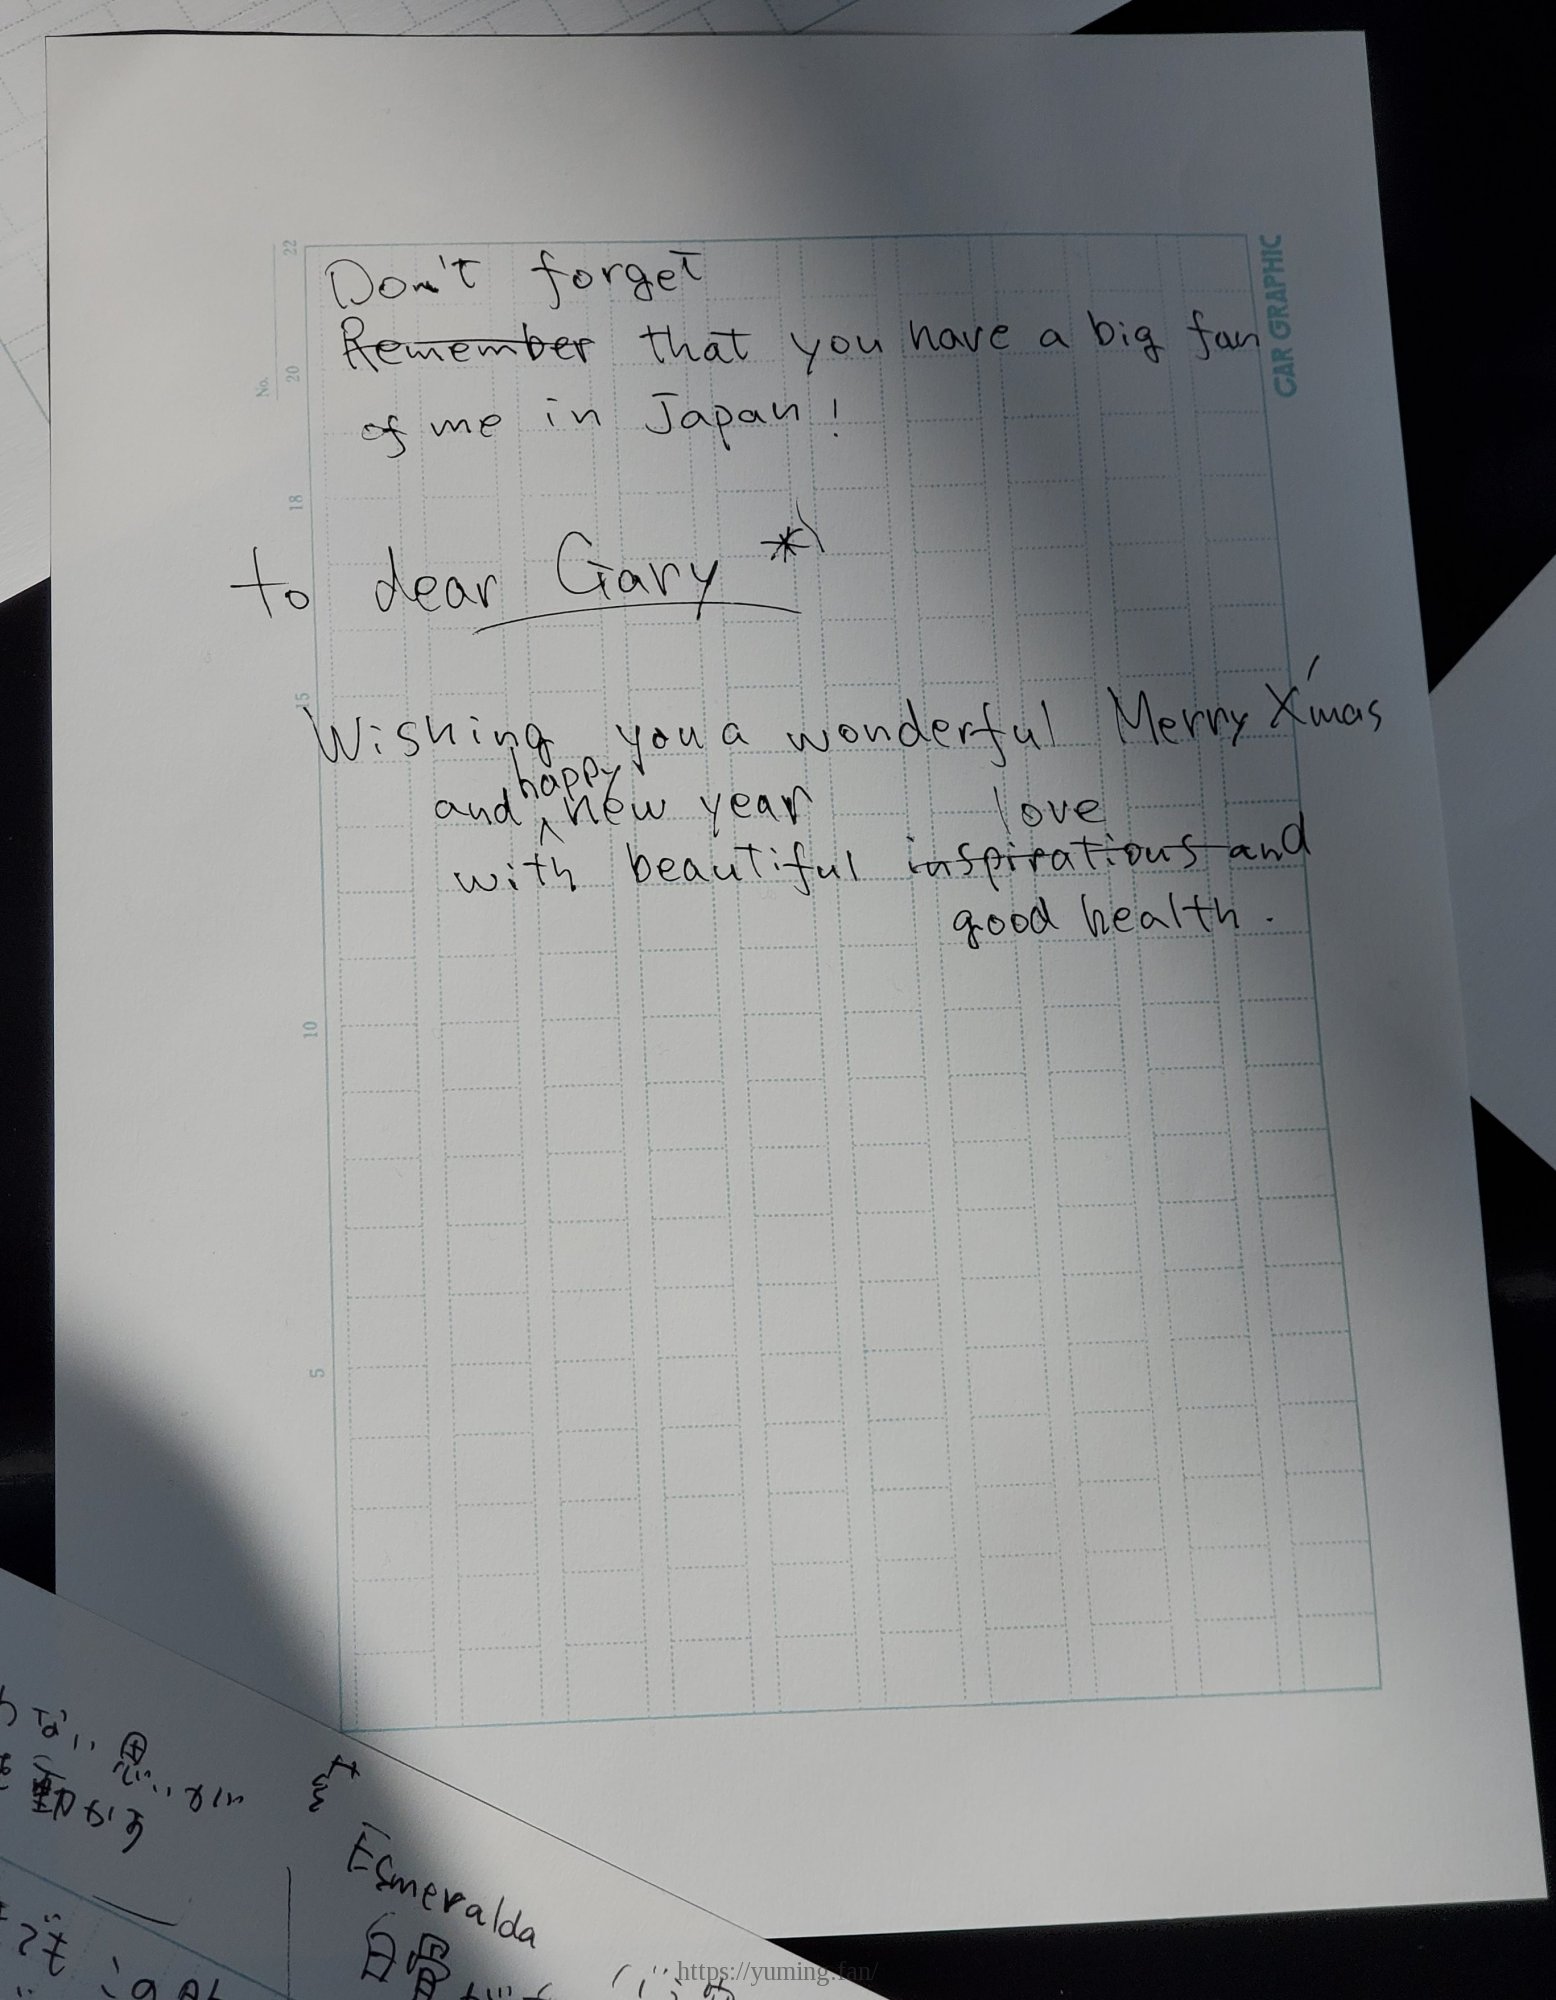 Don't forget
Remember that you have a big fan
of me in Japan!
to dear Gary *
Wishing you a wonderful Merry X'mas
happy
and ^ new year
love
with beautiful inspirations and
good health.
CAR GRAPHIC
No.
22
20
18
15
10
5
ない思いが
動かす
Esmeralda
白骨
https://yuming.fan/